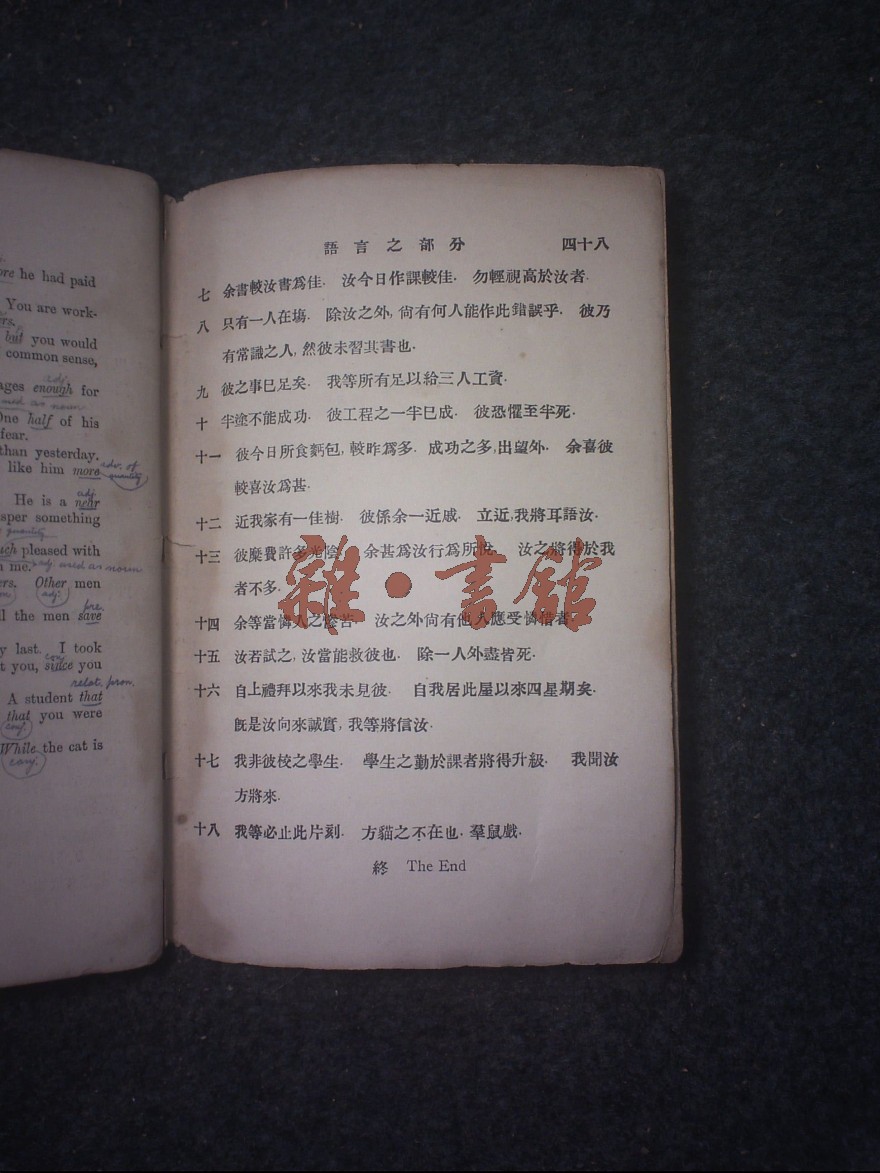 ore he had paid
You are work-
ers.
but you would
common sense,
adj.
ages enough for
used as noun
One half of his
fear.
than yesterday.
like him more adv. of quantity
adj
He is a near
sper something
quantity
uch pleased with
n me. adj used as noun
ers. Other men
adj.
pre.
ll the men save
y last. I took
conj
t you, since you
relat. pron.
A student that
that you were
conj.
While the cat is
conj.
語言之部分 四十八
七 余書較汝書爲佳. 汝今日作課較佳. 勿輕視高於汝者.
八 只有一人在塲. 除汝之外, 尙有何人能作此錯誤乎. 彼乃
有常識之人, 然彼未習其書也.
九 彼之事巳足矣. 我等所有足以給三人工資.
十 半塗不能成功. 彼工程之一半巳成. 彼恐懼至半死.
十一 彼今日所食麪包, 較昨爲多. 成功之多, 出望外. 余喜彼
較喜汝爲甚.
十二 近我家有一佳樹. 彼係余一近戚. 立近, 我將耳語汝.
十三 彼糜費許多光陰. 余甚爲汝行爲所悅. 汝之將得於我
者不多.
十四 余等當憐人之慘苦. 汝之外尙有他人應受憐惜者.
十五 汝若試之, 汝當能救彼也. 除一人外盡皆死.
十六 自上禮拜以來我未見彼. 自我居此屋以來四星期矣.
旣是汝向來誠實, 我等將信汝.
十七 我非彼校之學生. 學生之勤於課者將得升級. 我聞汝
方將來.
十八 我等必止此片刻. 方貓之不在也. 羣鼠戲.
終 The End
雜·書館